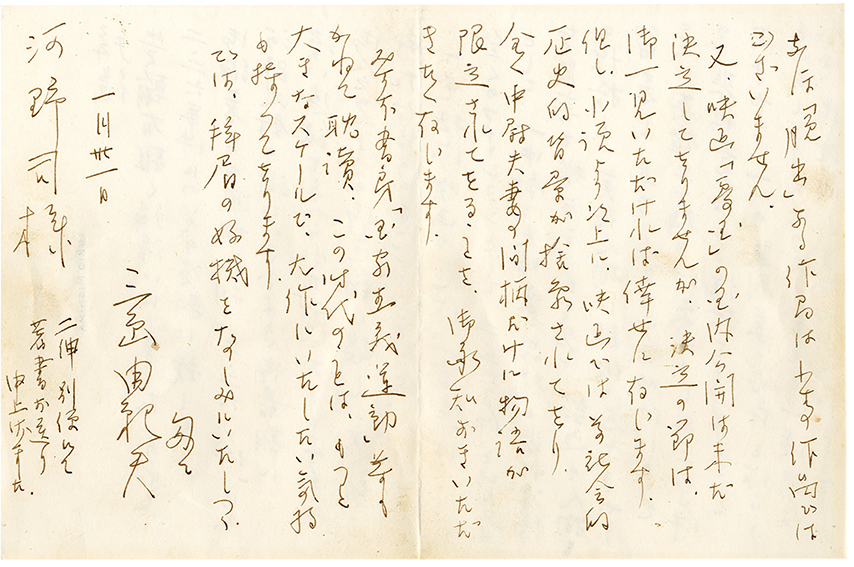 なほ「脱出」なる作品は小生作品では
ございません。
又、映画「憂国」の国内公開は未だ
決定してをりませんが、決定の節は、
御一見いただければ倖せに存じます。
但し、小説より以上に、映画では社会的
歴史的背景が捨象されてをり、
全く中尉夫妻の間柄だけに物語が
限定されてをることを、御承知おきいただ
きたく存じます。
みすず書房「国家主義運動」等も
かねて耽読、この時代のことは、もつと
大きなスケールで、大作にいたしたい気持
も持つてをります。
では、拝眉の好機をたのしみにいたしつゝ
匆々
一月卅一日
三島由紀夫
河野司様
二伸 別便にて
著書お送り
申上げました。